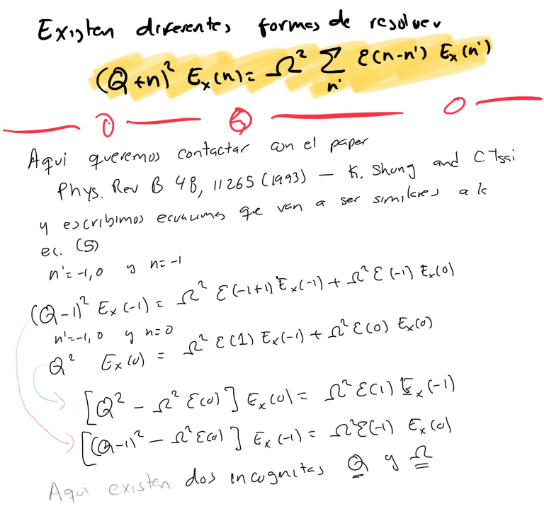 Existen diferentes formas de resolver
(Q+n)² Eₓ(n) = Ω² Σ ε(n-n') Eₓ(n')
n'
Aqui queremos contactar con el paper
Phys. Rev B 48, 11265 (1993) — K. Shung and C. Tsai
y escribimos ecuaciones que van a ser similares a la
ec. (5)
n'=-1,0 y n=-1
(Q-1)² Eₓ(-1) = Ω² ε(-1+1) Eₓ(-1) + Ω² ε(-1) Eₓ(0)
n'=-1,0 y n=0
Q² Eₓ(0) = Ω² ε(1) Eₓ(-1) + Ω² ε(0) Eₓ(0)
[Q² - Ω² ε(0)] Eₓ(0) = Ω² ε(1) Eₓ(-1)
[(Q-1)² - Ω² ε(0)] Eₓ(-1) = Ω² ε(-1) Eₓ(0)
Aqui existen dos incognitas Q y Ω